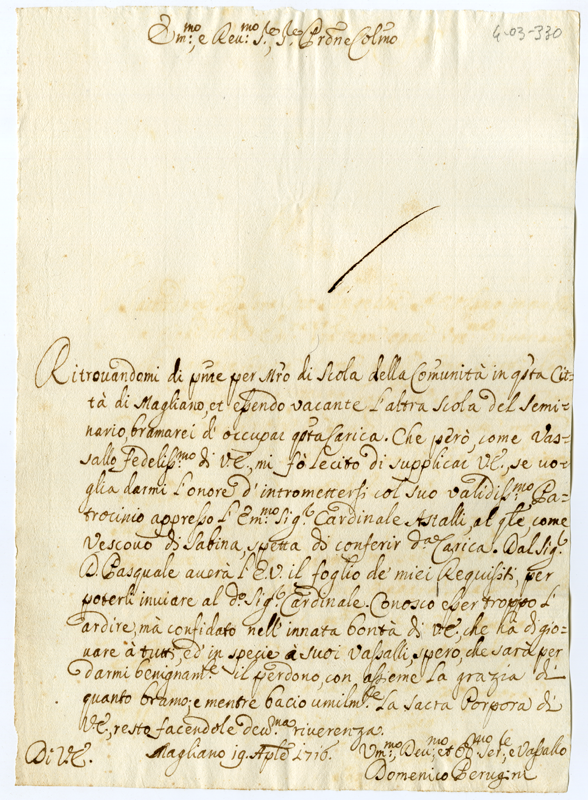 4-03-330
Em:mo, e Reu:mo Sr, Sr Prone Colmo
Ritrouandomi di pnte per Mro di Scola della Comunità in qsta Cit-
tà di Magliano, et essendo vacante l'altra Scola del Semi-
nario, bramarei di occupar qsta Carica. Che però, come Vas-
sallo Fedeliss:mo di V.E., mi fò lecito di supplicar V.E., se uo-
glia darmi l'onore d'intromettersi col suo validiss:mo Pa-
trocinio appresso l'Em:mo Sig.r Cardinale Astalli, al qle, come
Vescouo di Sabina, spetta di conferir da Carica. Dal Sig.r
D. Pasquale auerà l'E.V. il foglio de miei Requisiti, per
poterli inuiare al do Sig.r Cardinale. Conosco esser troppo l'
ardire, mà confidato nell'innata bontà di V.E., che hà di gio-
uare à tutti, ed in specie à suoi Vassalli, spero, che sarà per
darmi benignam.te il perdono, con assieme la grazia di
quanto bramo; e mentre bacio umilm.te la Sacra Porpora di
V.E., resto facendole deu:ma riuerenza.
Di V.E. Magliano 19. Aple 1716. Vm:mo, Deu:mo, et Oblig:mo Ser.e, e Vassallo
Domenico Perugini